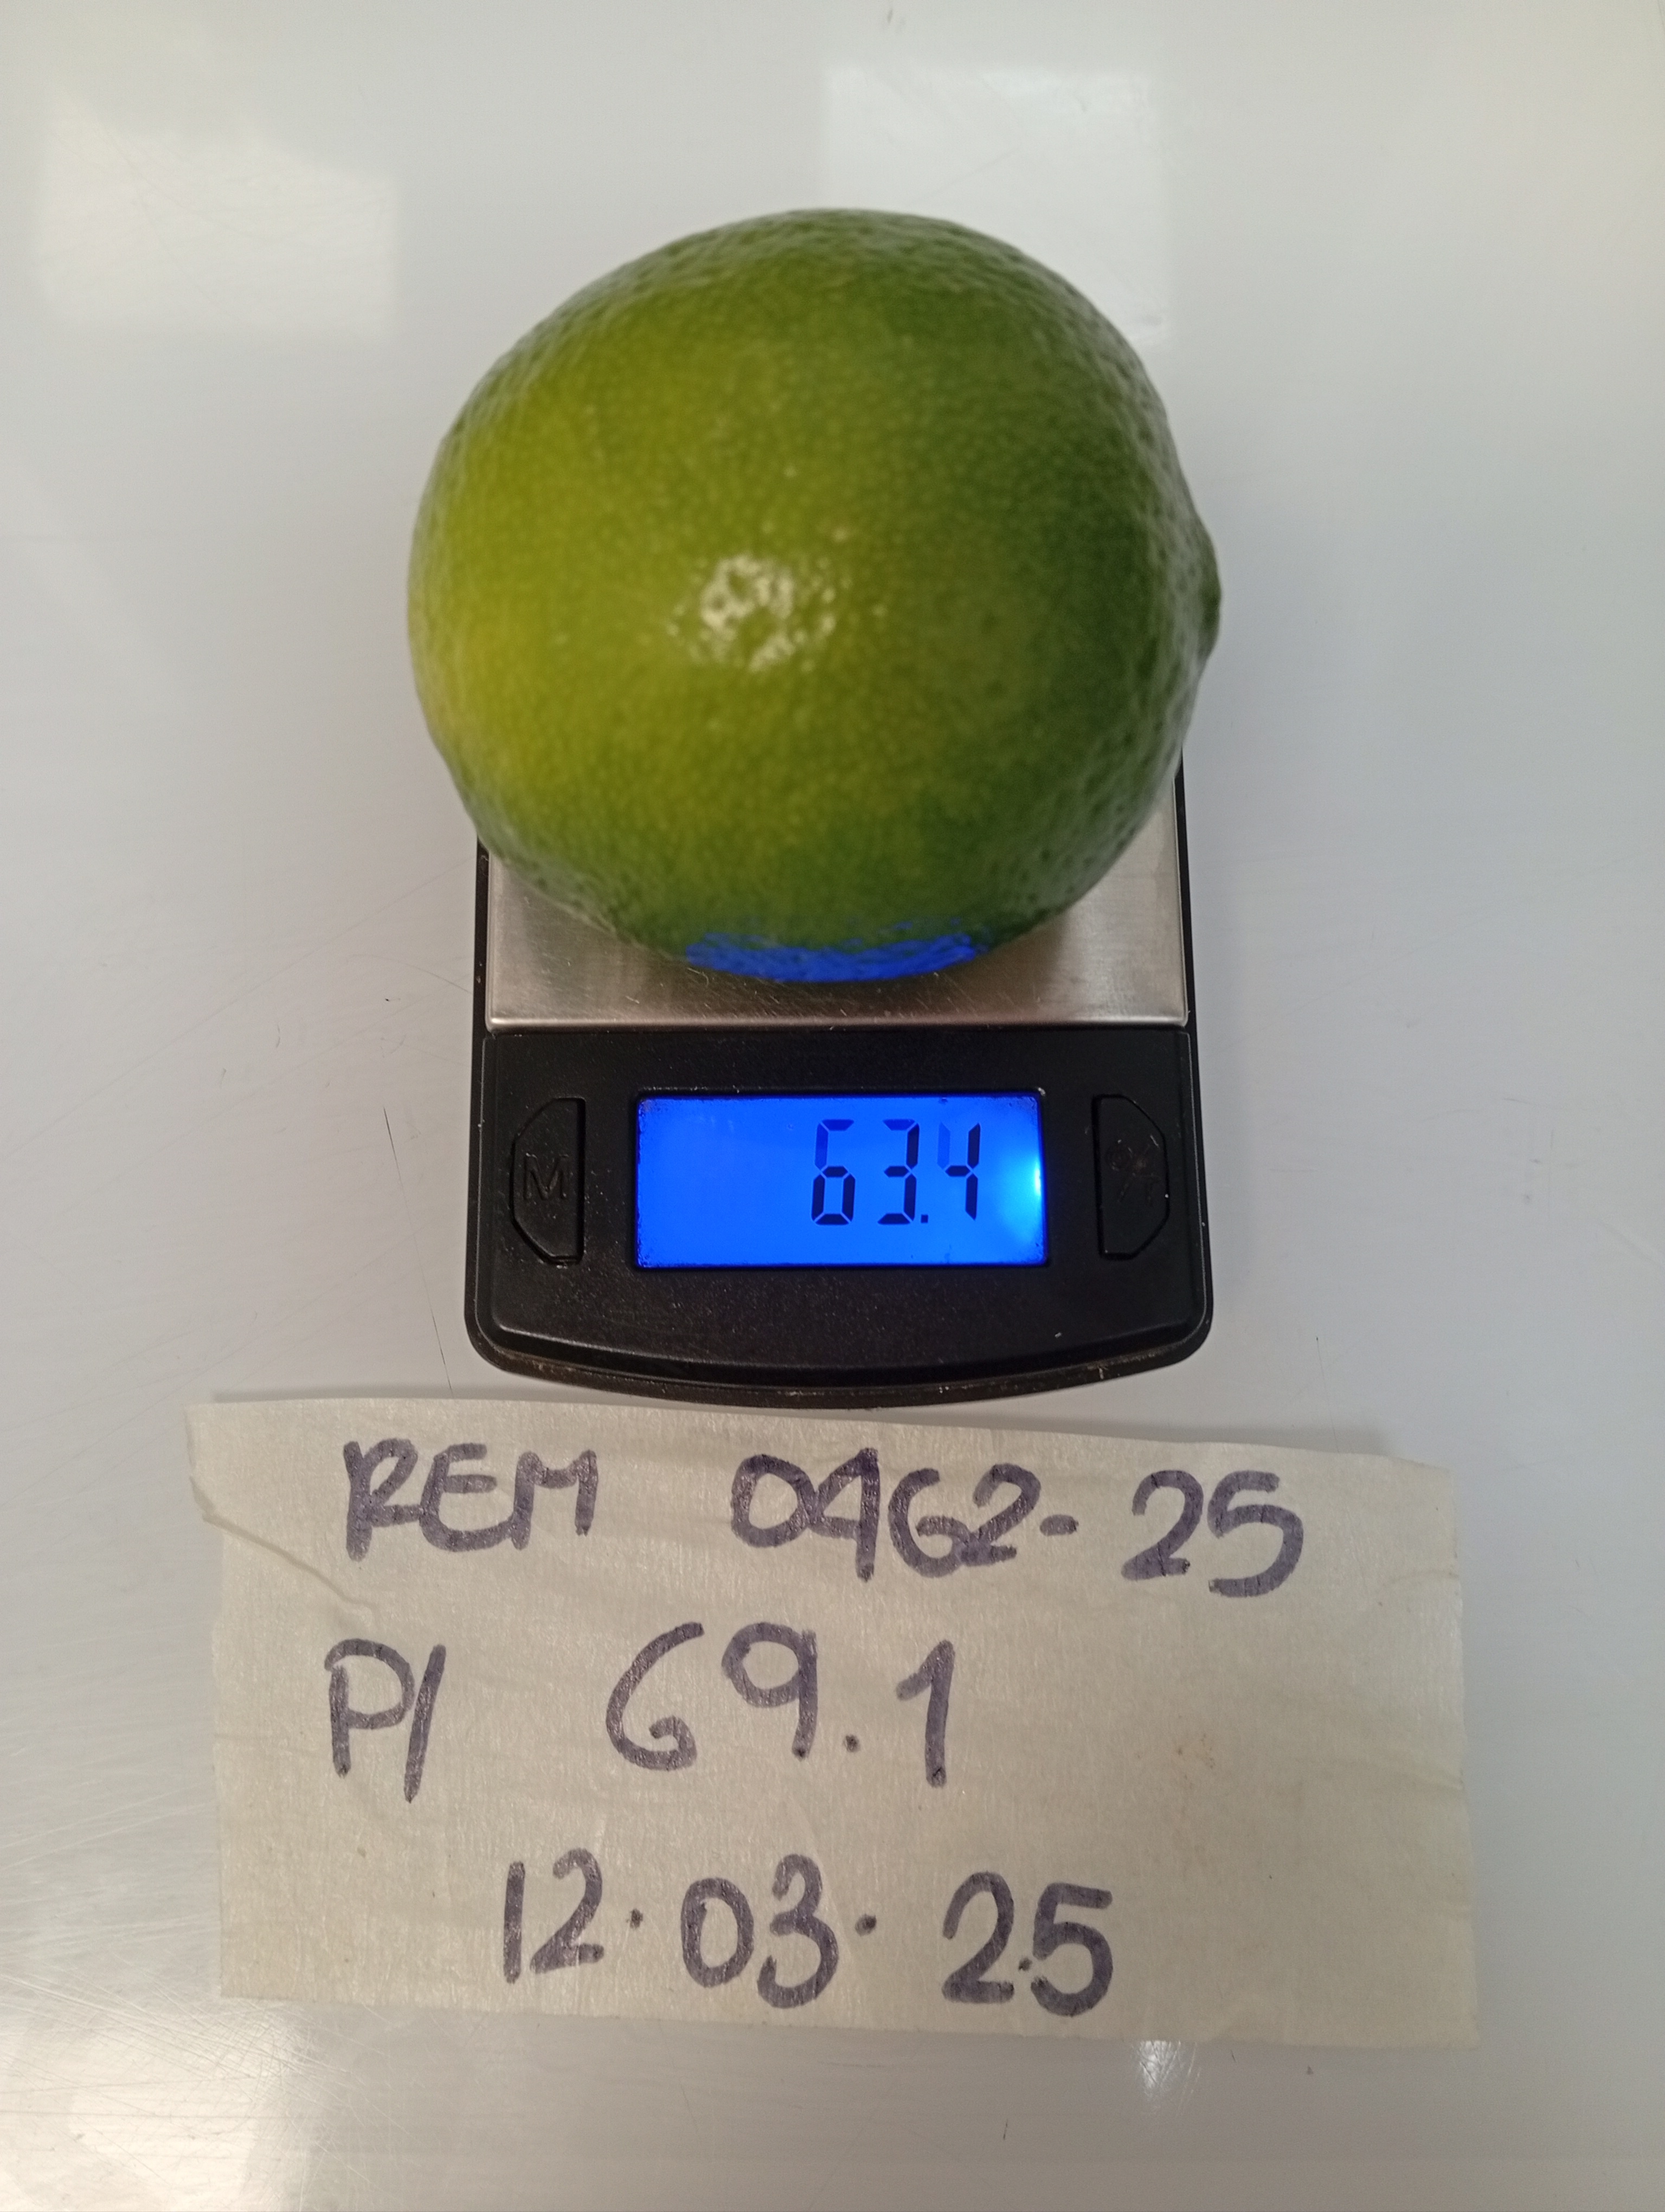 63.4
M
REM 0462-25
P/ 69.1
12.03.25